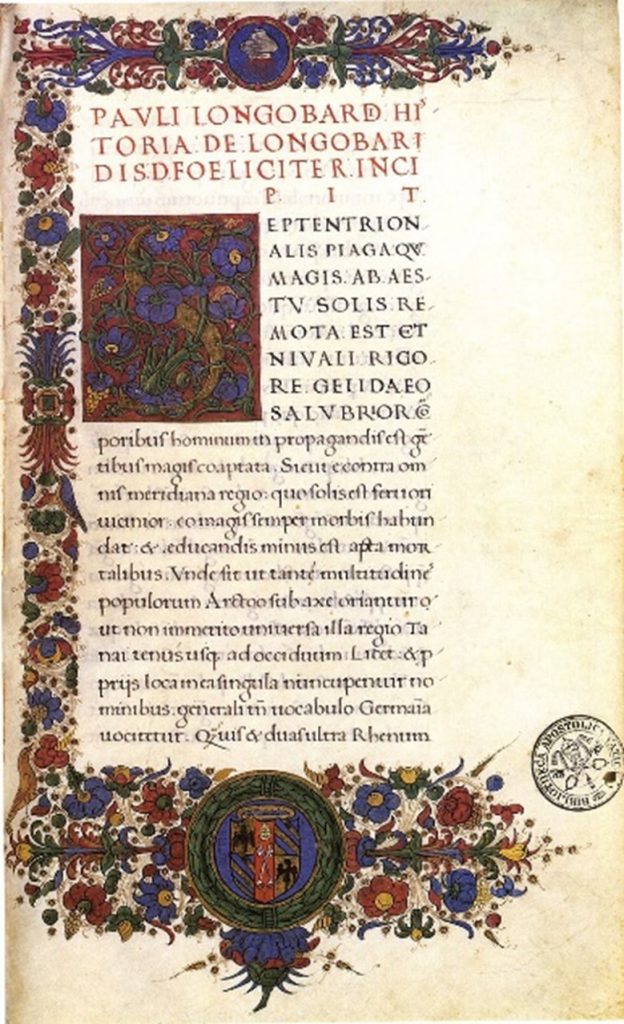 PAVLI LONGOBARD HIS
TORIA DE LONGOBAR
DIS.D.FOELICITER.INCI
P I T.
EPTENTRION
ALIS PLAGA QV
MAGIS. AB AES-
TV SOLIS RE
MOTA EST ET
NIVALI RIGO
RE GELIDA EO
SALVBRIOR CÕ
poribus hominum & propagandis est gẽ
tibus magis coaptata. Sicut econtra om
nis meridiana regio: quo solis est feruori
uicinior: eo magis semper morbis habun
dat: & educandis minus est apta mor
talibus. Vnde fit ut tantẽ multitudinẽ
populorum Arctoo sub axe oriantur
ut non immerito uniuersa illa regio Ta
nai tenus usq. ad occiduum Licet & p
prijs loca in ea singula nuncupentur no
minibus: generali tñ uocabulo Germaĩa
uocitetur. & duas ultra Rhenum
BIBLIOTHECA APOSTOLICA VATIC